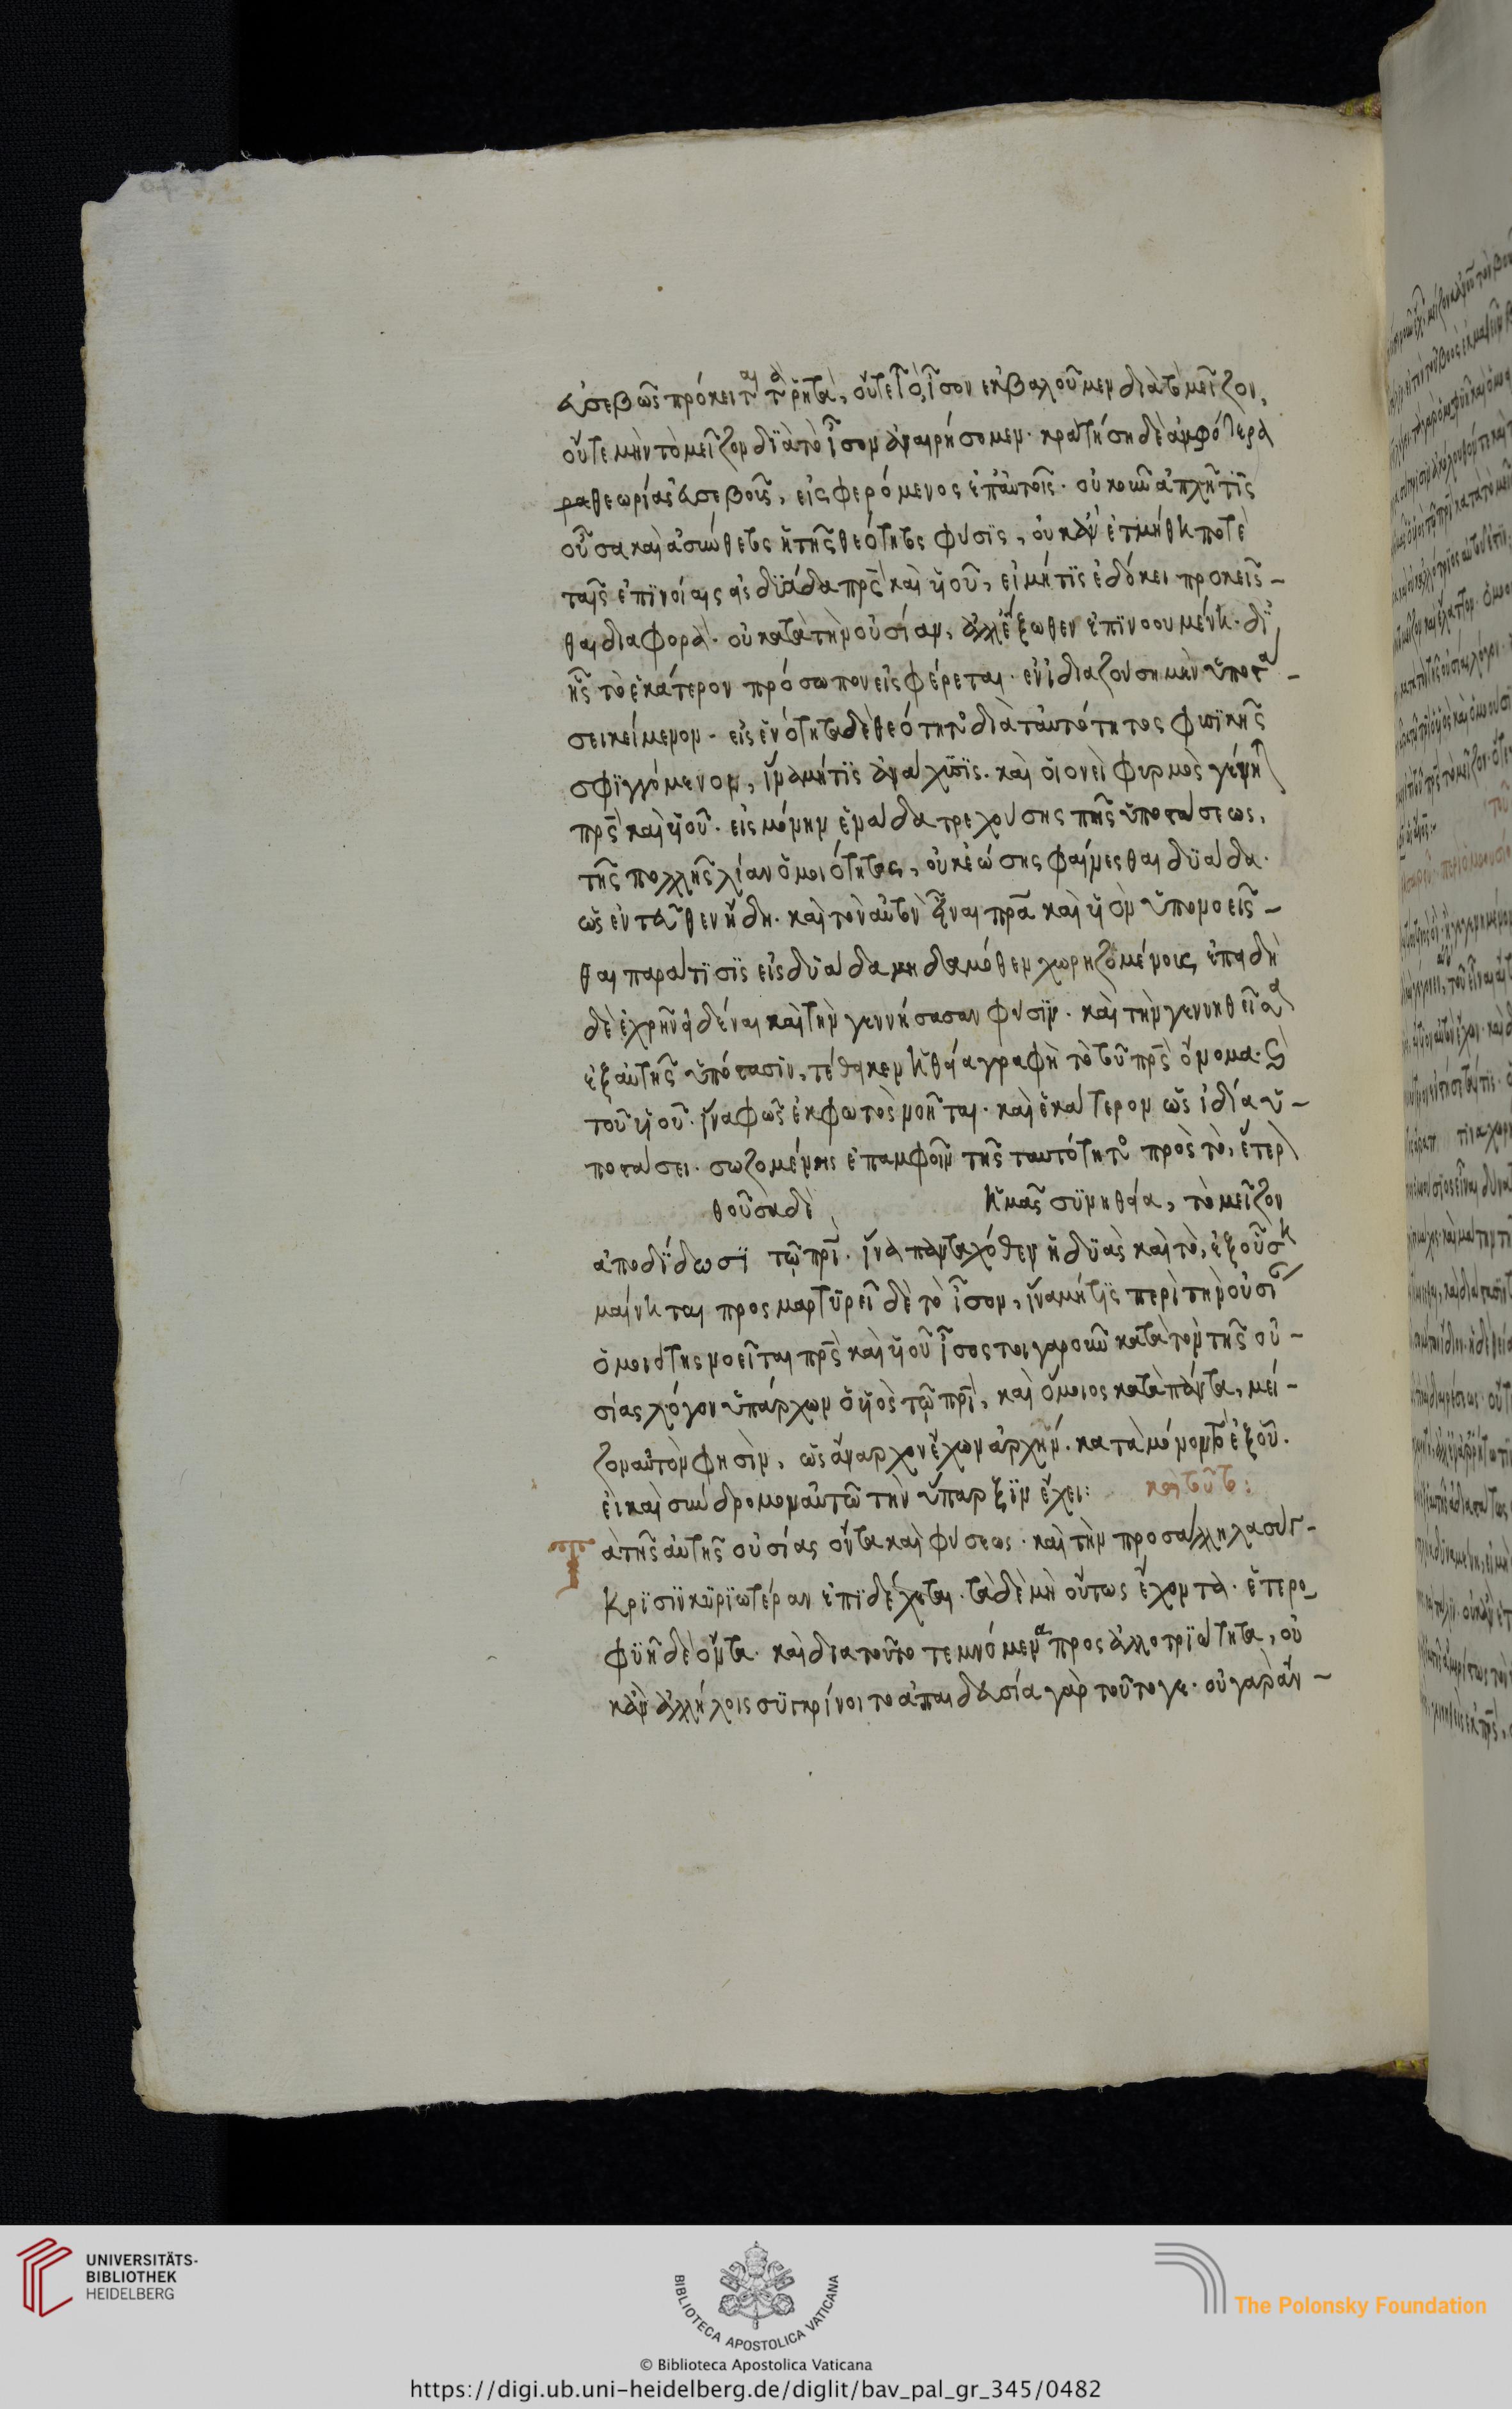 εὐσεβῶς πρόκειται τὰ ῥητά, οὔτε τὸ ἴσον ἐκβαλοῦμεν διὰ τὸ μεῖζον,
οὔτε μὴν τὸ μεῖζον διὰ τὸ ἴσον ἀναιρήσομεν· κρατήση δὲ ἀμφότερα
ρα θεωρίας εὐσεβοῦς, εἰσφερόμενος ἐπ' αὐτοῖς· οὐκοῦν ἁπλῆ τίς
οὖσα καὶ ἀσύνθετος ἡ τῆς θεότητος φύσις, οὐκ ἂν ἐτμήθη ποτὲ
ταῖς ἐπινοίαις εἰς δυάδα πρς καὶ υἱοῦ, εἰ μή τις ἐδόκει προκεῖσ-
θαι διαφορὰ· οὐ κατὰ τὴν οὐσίαν, ἀλλ' ἔξωθεν ἐπινοουμένη· δι'
ἧς τὸ ἑκάτερον πρόσωπον εἰσφέρεται· ἐν ἰδιαζούση μὲν ὑποστά-
σει κείμενον· εἰς ἑνότητα δὲ θεότητος διὰ ταυτότητος φυσικῆς
σφιγγόμενον, ἵνα μή τις ἀνάχυσις· καὶ οἱονεὶ φυρμὸς γένηται
πρς καὶ υἱοῦ· εἰς μόνην ἑνάδα τρεχούσης πῆς ὑποστάσεως,
τῆς πολλῆς λίαν ὁμοιότητος, οὐκ ἐώσης φαίνεσθαι δυάδα·
ὡς ἐντεῦθεν ἤδη· καὶ τὸν αὐτὸν εἶναι πρα καὶ υἱὸν ὑπονοεῖσ-
θαι παρά τισιν εἰς δυάδα μηδαμόθεν χωριζομένοις, ἐπειδὴ
δὲ ἐχρῆν εἰδέναι καὶ τὴν γεννήσασαν φύσιν· καὶ τὴν γεννηθεῖσαν
ἐξ αὐτῆς ὑπόστασιν, τέθεικεν ἡ θεία γραφὴ τὸ τοῦ πρς ὄνομα· καὶ
τοῦ υἱοῦ· ἵνα φῶς ἐκ φωτὸς νοῆται· καὶ ἑκάτερον ὡς ἰδία ὑ-
ποστάσει· σωζομένης ἐπ' ἀμφοῖν τῆς ταυτότητος πρὸς τὸ, ἕτερ
θοῦσα δὲ ἡμᾶς συνήθεια, τὸ μεῖζον
ἀποδίδωσι τῷ πρι· ἵνα πανταχόθεν ἡ δυὰς καὶ τὸ, ἐξ οὗ ση
μαίνηται προσμαρτυρεῖ δὲ τὸ ἴσον, ἵνα μή τις περὶ τὴν οὐσίαν
ὁμοιότης νοεῖται πρς καὶ υἱοῦ ἴσος τοιγαροῦν κατὰ τὸν τῆς οὐ-
σίας λόγον ὑπάρχων ὁ υἱὸς τῷ πρι, καὶ ὅμοιος κατὰ πάντα, μεί-
ζον αὐτὸν φησὶν, ὡς ἄναρχον ἔχων ἀρχήν· κατὰ μόνον τὸ ἐξ οὗ·
εἰ καὶ σύνδρομον αὐτῷ τὴν ὕπαρξιν ἔχει: καὶ τοῦτο:
Τὰ τῆς αὐτῆς οὐσίας ὄντα καὶ φύσεως· καὶ τὴν πρὸς ἄλληλα συγ-
κρισιν κυριωτέραν ἐπιδέχεται· τὰ δὲ μὴ οὕτως ἔχοντα· ἑτερο
φυῆ δὲ ὄντα· καὶ διὰ τοῦτο τεμνόμενα πρὸς ἀλλοτριότητα, οὐ
κἂν ἀλλήλοις συγκρίνοιτο ἀπαιδευσία γὰρ τοῦτο γε· οὐ γὰρ ἂν-
UNIVERSITÄTS-
BIBLIOTHEK
HEIDELBERG
BIBLIOTECA APOSTOLICA VATICANA
The Polonsky Foundation
© Biblioteca Apostolica Vaticana
https://digi.ub.uni-heidelberg.de/diglit/bav_pal_gr_345/0482